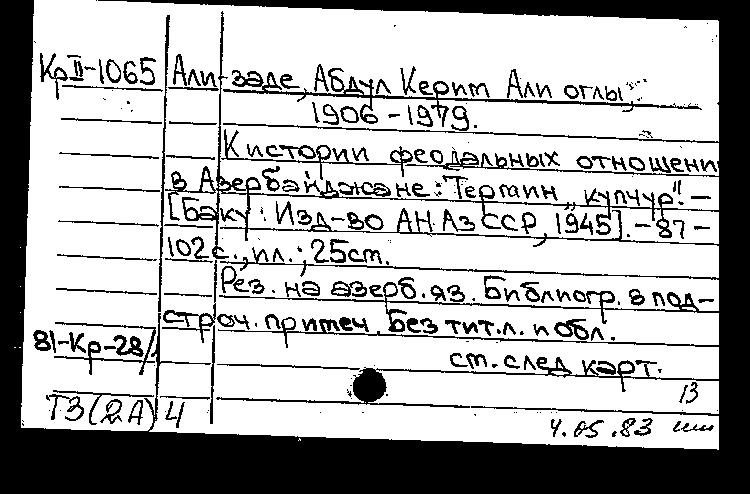 Кр II-1065 Али-заде, Абдул Керим Али оглы,
1906-1979.
К истории феодальных отношени
в Азербайджане: Термин „купчур". –
[Баку: Изд-во АН АзССР, 1945]. – 87 –
102 с., ил.; 25 см.
Рез. на азерб. яз. Библиогр. в под-
строч. примеч. Без тит. л. и обл.
81-Кр-28/
см. след карт.
13
Т3(2А)4
4.05.83